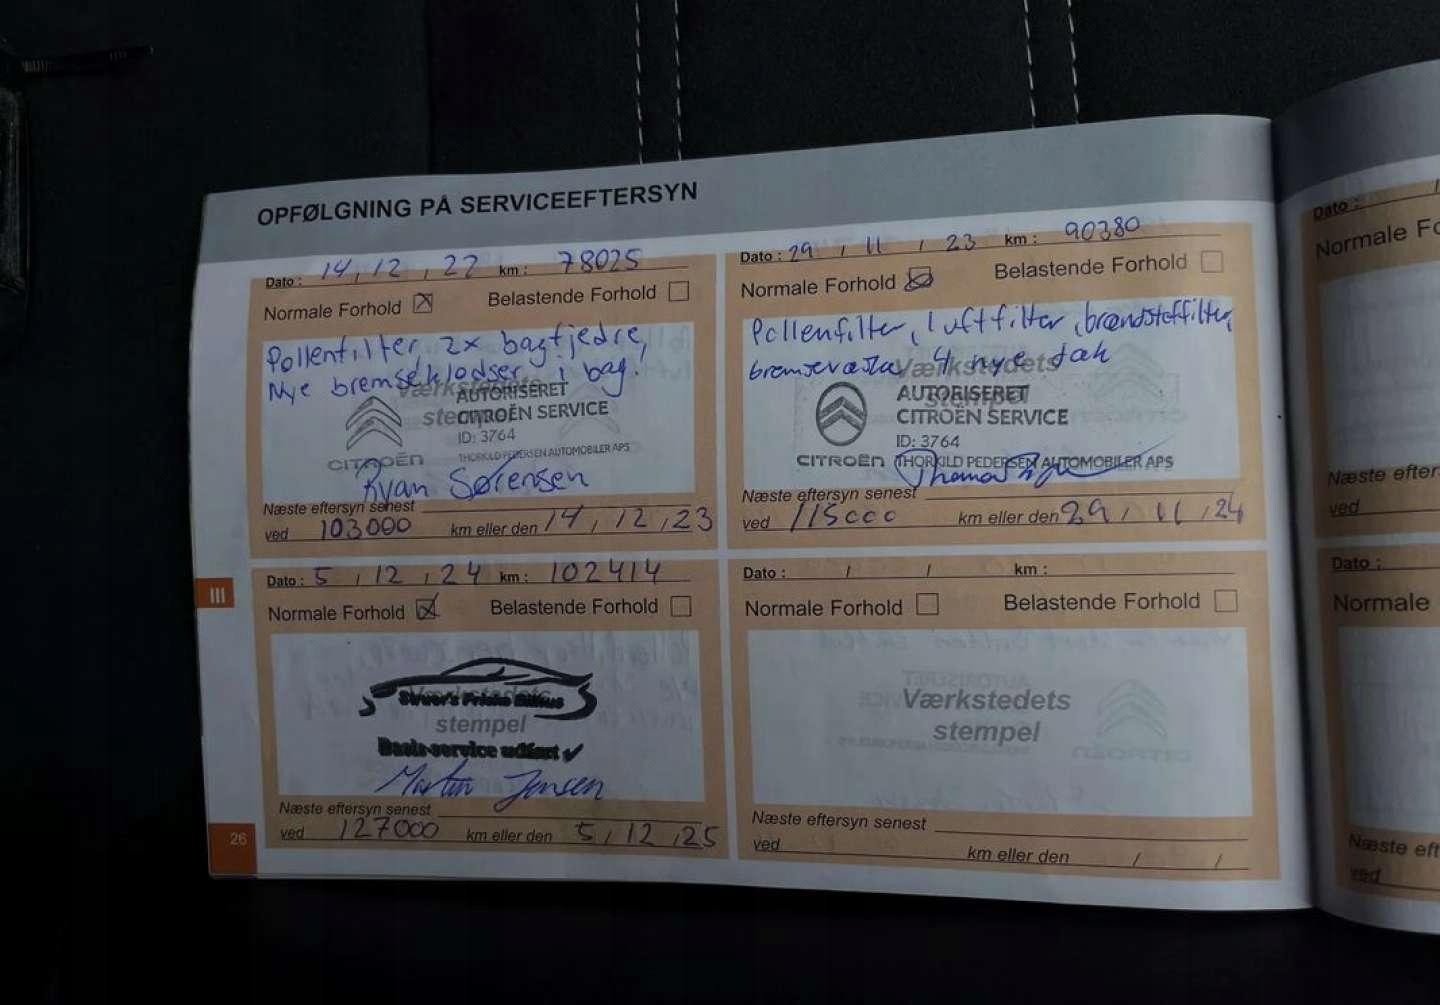 OPFØLGNING PÅ SERVICEEFTERSYN
Dato : 14, 12, 22 km : 78025
Normale Forhold Belastende Forhold
Pollenfilter, 2x bagfjedre,
Nye bremseklodser i bag!
Værkstedets
stempel
AUTORISERET
CITROËN SERVICE
ID: 3764
CITROËN THORKILD PEDERSEN AUTOMOBILER APS
Ryan Sørensen
Næste eftersyn senest
ved 103000 km eller den 14, 12, 23
Dato : 29, 11, 23 km : 90380
Normale Forhold Belastende Forhold
Pollenfilter, luftfilter, brændstoffilter,
bremsevæske 4 nye dæk
Værkstedets
stempel
AUTORISERET
CITROËN SERVICE
ID: 3764
CITROËN THORKILD PEDERSEN AUTOMOBILER APS
Thomas
Næste eftersyn senest
ved 115000 km eller den 29, 11, 24
III
Dato : 5, 12, 24 km : 102414
Normale Forhold Belastende Forhold
Værkstedets
stempel
Basis-service udført ✓
Martin Jensen
Næste eftersyn senest
ved 127000 km eller den 5, 12, 25
Dato : / / km :
Normale Forhold Belastende Forhold
Værkstedets
stempel
Næste eftersyn senest
ved km eller den / /
26
Dato :
Normale
Næste
ved
Dato :
Normale
Næste
ved